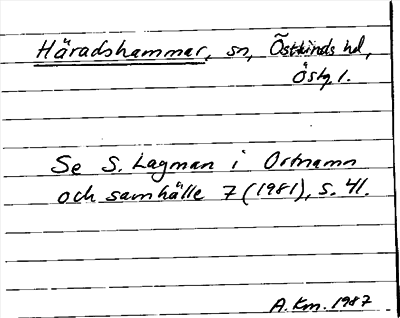 Häradshammar, sn, Östkinds hd,
Östg. l.
Se S. Lagman i Ortnamn
och samhälle 7 (1981), s. 41.
A. Km. 1987